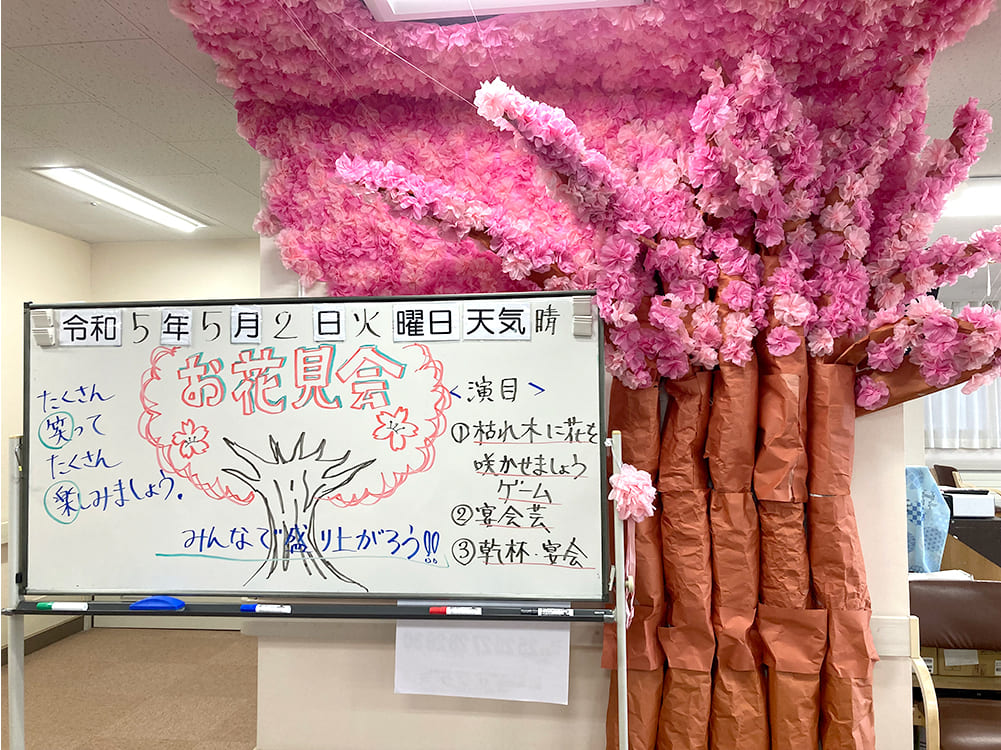 令和5年5月2日火曜日天気晴
お花見会
たくさん
笑って
たくさん
楽しみましょう。
みんなで盛り上がろう!!
<演目>
①枯れ木に花を
咲かせましょう
ゲーム
②宴会芸
③乾杯・宴会